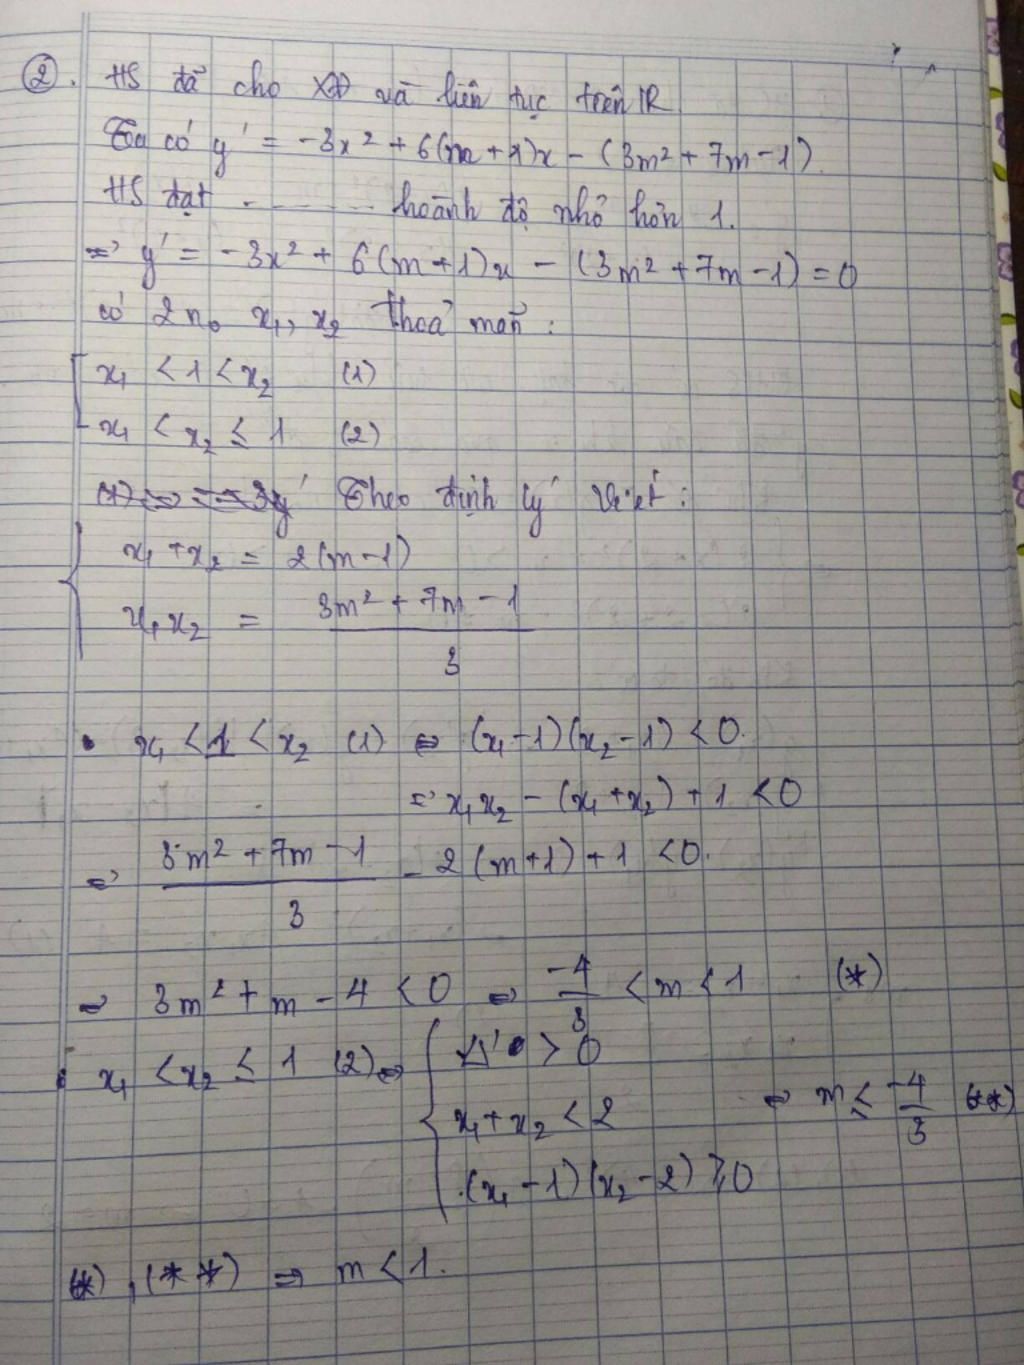 ②. HS đã cho XĐ và liên tục trên ℝ
Ta có y' = -3x² + 6(m+1)x - (3m² + 7m - 1).
HS đạt ........ hoành độ nhỏ hơn 1.
⇒ y' = -3x² + 6(m+1)x - (3m² + 7m - 1) = 0
có 2 n₀ x₁, x₂ thoả mãn :
[ x₁ < 1 < x₂ (1)
x₁ < x₂ ≤ 1 (2)
Theo định lý Viet :
{ x₁ + x₂ = 2(m-1)
x₁x₂ = (3m² + 7m - 1)/3
• x₁ < 1 < x₂ (1) ⇔ (x₁-1)(x₂-1) < 0.
⇒ x₁x₂ - (x₁+x₂) + 1 < 0
⇒ (3m² + 7m - 1)/3 - 2(m+1) + 1 < 0.
⇒ 3m² + m - 4 < 0 ⇔ -4/3 < m < 1 (*)
• x₁ < x₂ ≤ 1 (2) ⇔ { Δ' > 0
x₁ + x₂ < 2 ⇔ m ≤ -4/3 (**)
(x₁-1)(x₂-2) ≥ 0
(*), (**) ⇒ m < 1.